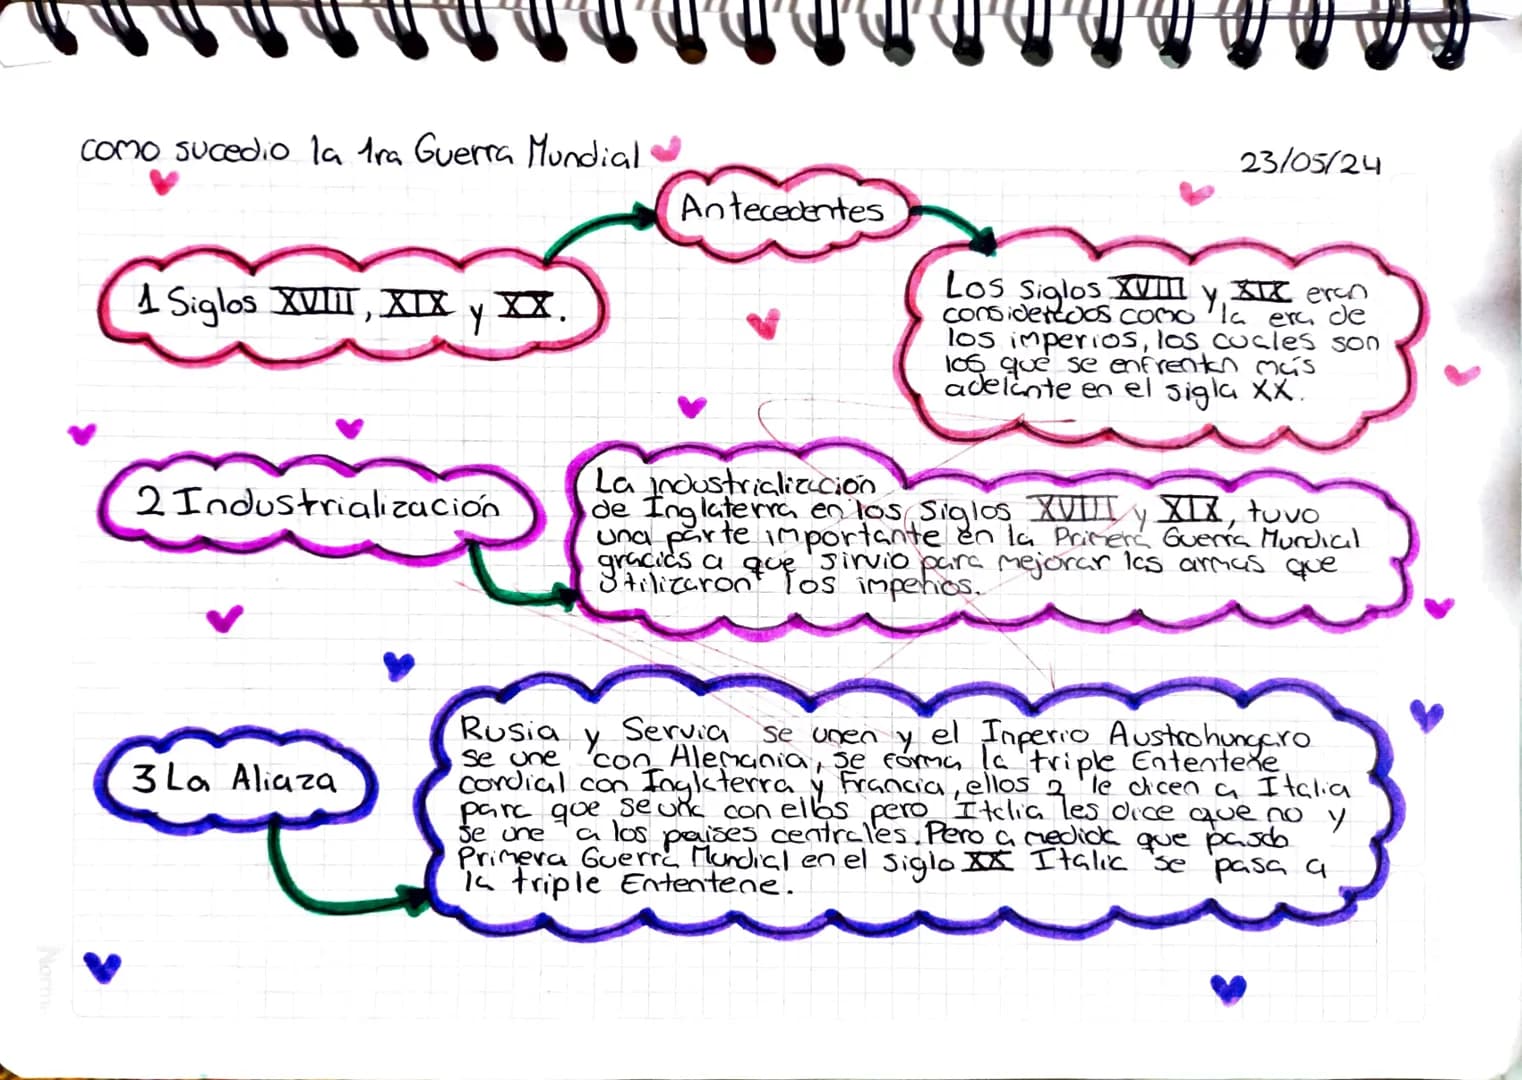 como sucedio la 1ra Guerra Mundial
23/05/24
Antecedentes
1 Siglos XVIII, XIX y XX.
Los Siglos XVIII y XIX eran
considerados como la era de
los imperios, los cuales son
los que se enfrentan más
adelante en el sigla XX.
2 Industrialización
La industrialización
de Inglaterra en los Siglos XVIII y XIX, tuvo
una parte importante en la Primera Guerra Mundial
gracias a que sirvio para mejorar las armas que
utilizaron los imperios.
3 La Aliaza
Rusia y Servia se unen y el Inperio Austrohungaro
se une con Alemania, se forma la triple Ententene
cordial con Inglaterra y Francia, ellos 2 le dicen a Italia
para que se una con ellos pero Italia les dice que no y
se une a los paises centrales. Pero a medida que pasab
Primera Guerra Mundial en el siglo XX Italia se pasa a
la triple Ententene.
Norma